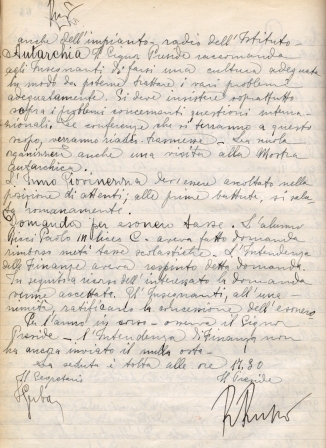 anche dell'impianto radio dell'Istituto -
Autarchia Il Signor Preside raccomanda
agli Insegnanti di farsi una cultura adeguata
in modo da poterne trattare i vari problemi
adeguatamente. Si deve insistere soprattutto
sopra i problemi concernenti questioni interna-
zionali. Le conferenze che si terranno a questo
scopo, verranno radiotrasmesse. La scuola
organizzerà anche una visita alla Mostra
Autarchica.
L'Inno Giovinezza dev'essere ascoltato nella
posizione di attenti; alle prime battute, si saluta
romanamente.
Domanda per esonero tasse. L'alunno
Paolo III liceo C. aveva fatto domanda
rimborso metà tasse scolastiche. L'Intendenza
delle Finanze aveva respinto detta domanda.
In seguito a ricorso dell'interessato la domanda
venne accettata. Gli Insegnanti, all'una-
nimità, ratificarlo la concessione dell'esonero.
Per l'anno in corso - osserva il Signor
Preside - l'Intendenza di Finanza non
ha ancora inviato il nulla osta.
La seduta è tolta alle ore 17.30
Il Segretario Il Preside